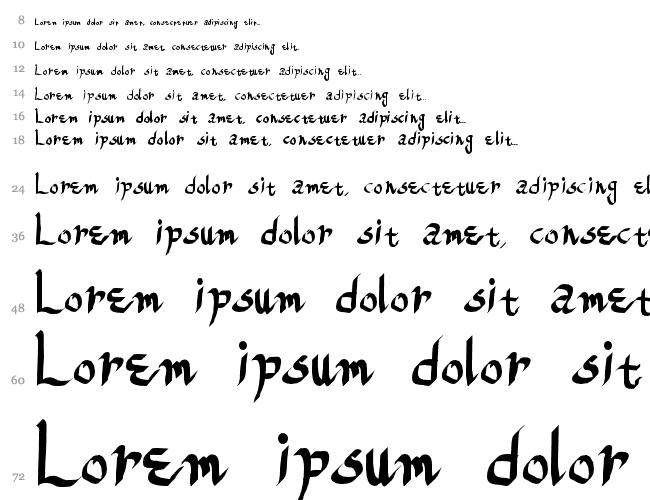 8 Lorem ipsum dolor sit amet, consectetuer adipiscing elit...
10 Lorem ipsum dolor sit amet, consectetuer adipiscing elit.
12 Lorem ipsum dolor sit amet, consectetuer adipiscing elit...
14 Lorem ipsum dolor sit amet, consectetuer adipiscing elit...
16 Lorem ipsum dolor sit amet, consectetuer adipiscing elit...
18 Lorem ipsum dolor sit amet, consectetuer adipiscing elit...
24 Lorem ipsum dolor sit amet, consectetuer adipiscing el
36 Lorem ipsum dolor sit amet, consect
48 Lorem ipsum dolor sit amet
60 Lorem ipsum dolor sit
72 Lorem ipsum dolor